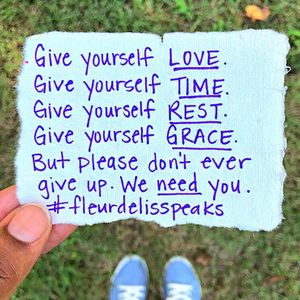 Give yourself LOVE.
Give yourself TIME.
Give yourself REST.
Give yourself GRACE.
But please don't ever
give up. We need you.
#fleurdelisspeaks